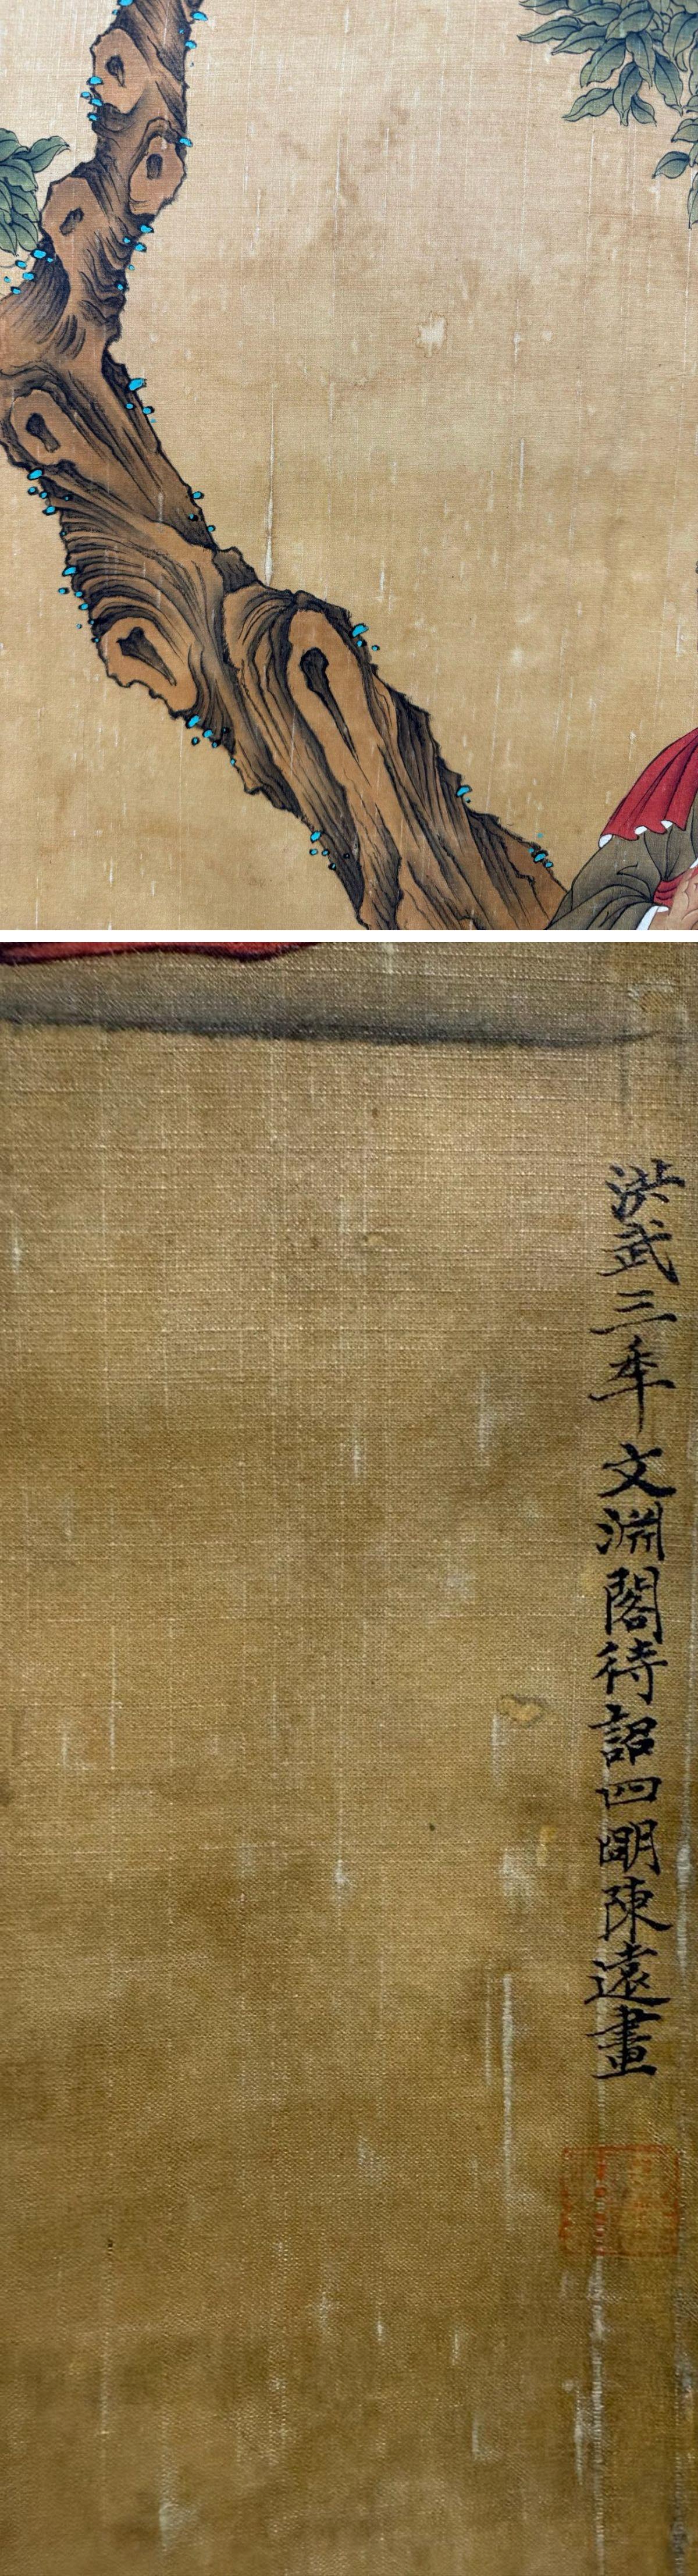 洪武三年文淵閣待詔四明陳遠畫